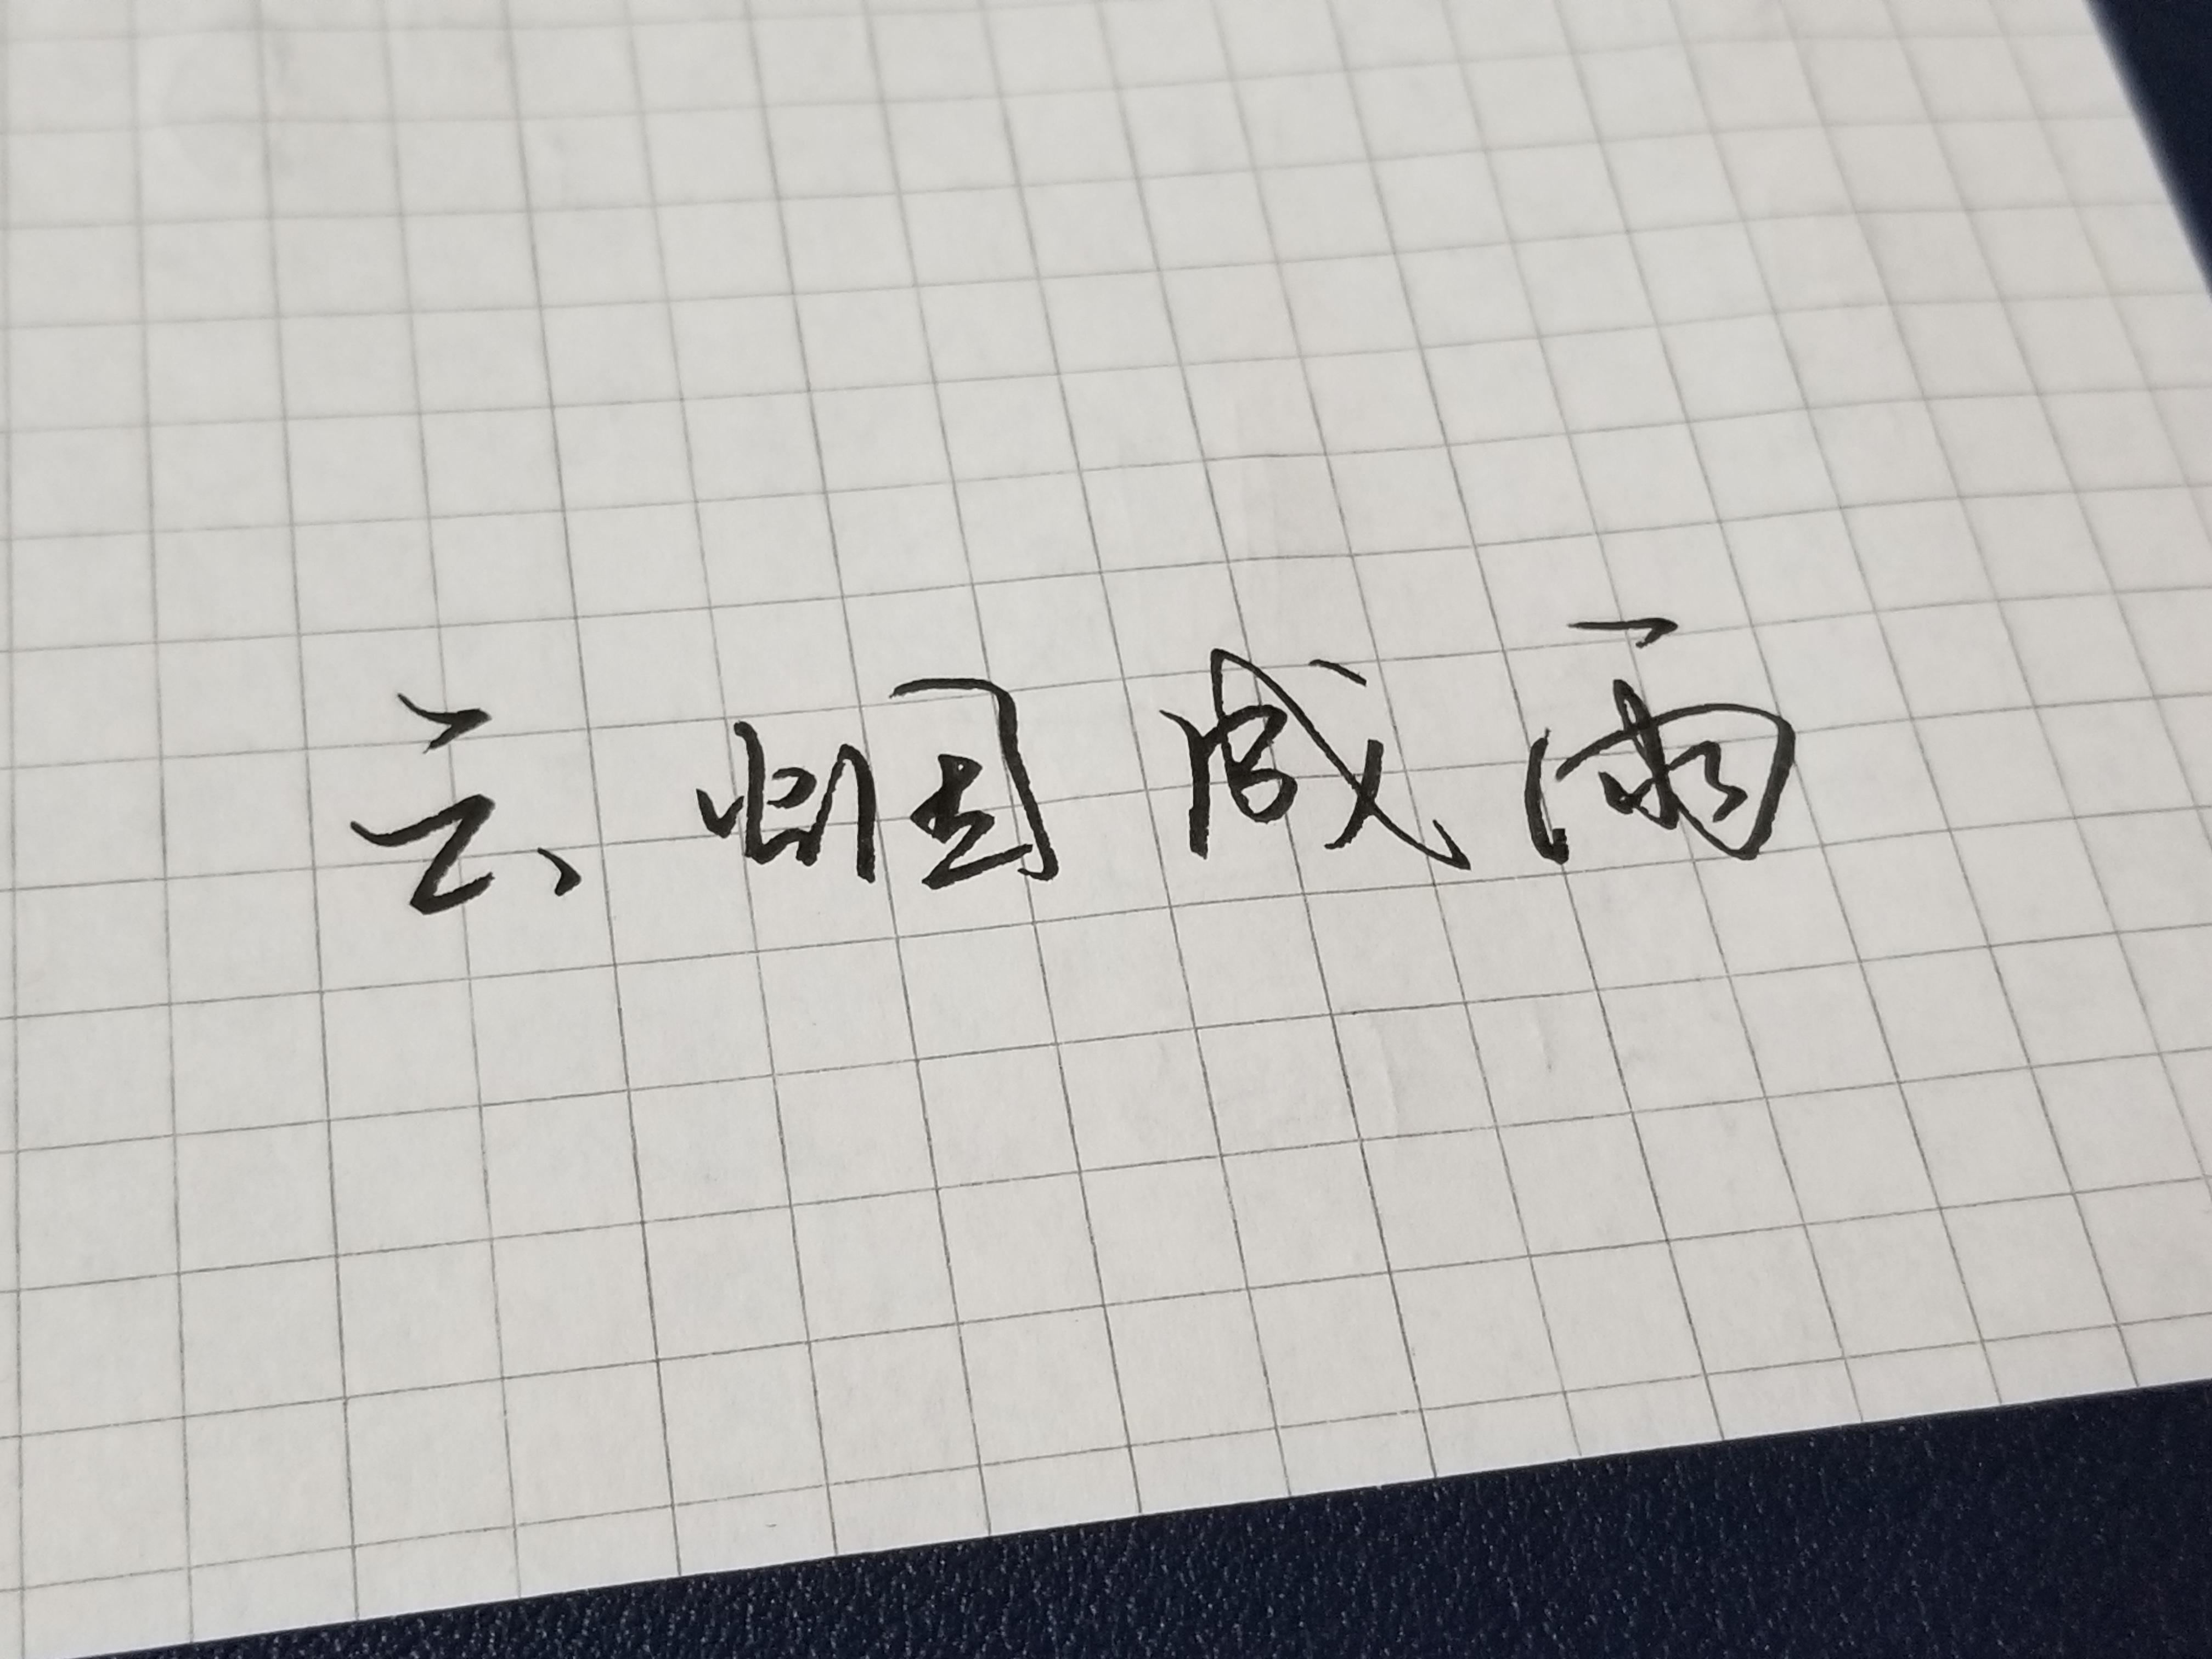 云烟成雨